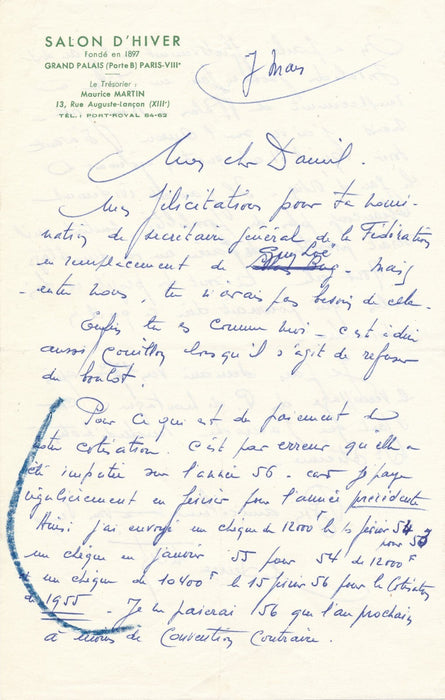 SALON D'HIVER
Fondé en 1897
GRAND PALAIS (Porte B) PARIS-VIIIᵉ
Le Trésorier :
Maurice MARTIN
13, Rue Auguste-Lançon (XIIIᵉ)
TÉL. : PORT-ROYAL 64-62
7 Mars
Mon cher Daniel.
Mes félicitations pour ta nomi-
nation de secrétaire général de la Fédération
en remplacement de - mais
entre nous, tu n'avais pas besoin de cela -
Enfin tu es comme moi - c'est à dire
aussi couillon lorsqu'il s'agit de refuser
du boulot.
Pour ce qui est du paiement de
notre cotisation. c'est par erreur qu'elle a
été imputée sur l'année 56 - car je paye
régulièrement en février pour l'année précédente
Ainsi j'ai envoyé un chèque de 12000ᶠ le février 54
pour 53
un chèque en janvier 55 pour 54 de 12000ᶠ
un chèque de 10400ᶠ le 15 février 56 pour la Cotisation
de 1955 - Je ne paierai 56 que l'an prochain
à moins de Convention Contraire.